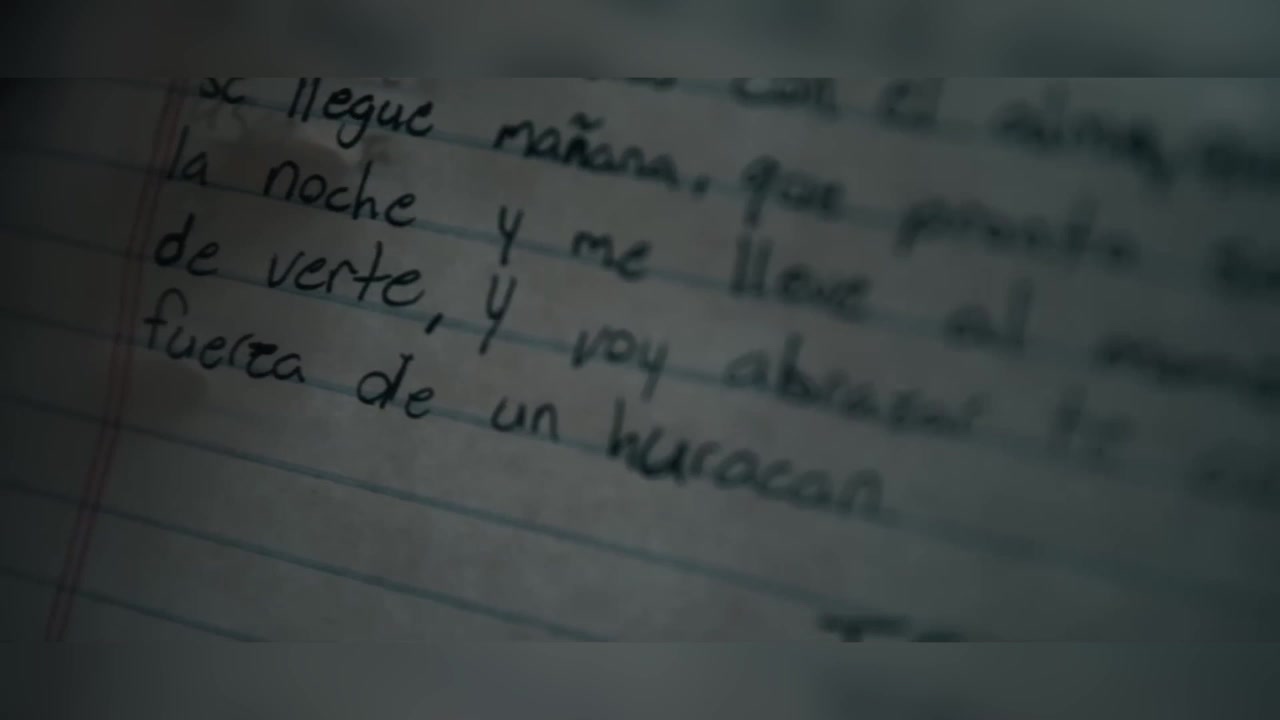 con el alma, que
se llegue mañana, que pronto
la noche y me lleve al
de verte, y voy abrazarte
fuerza de un huracan